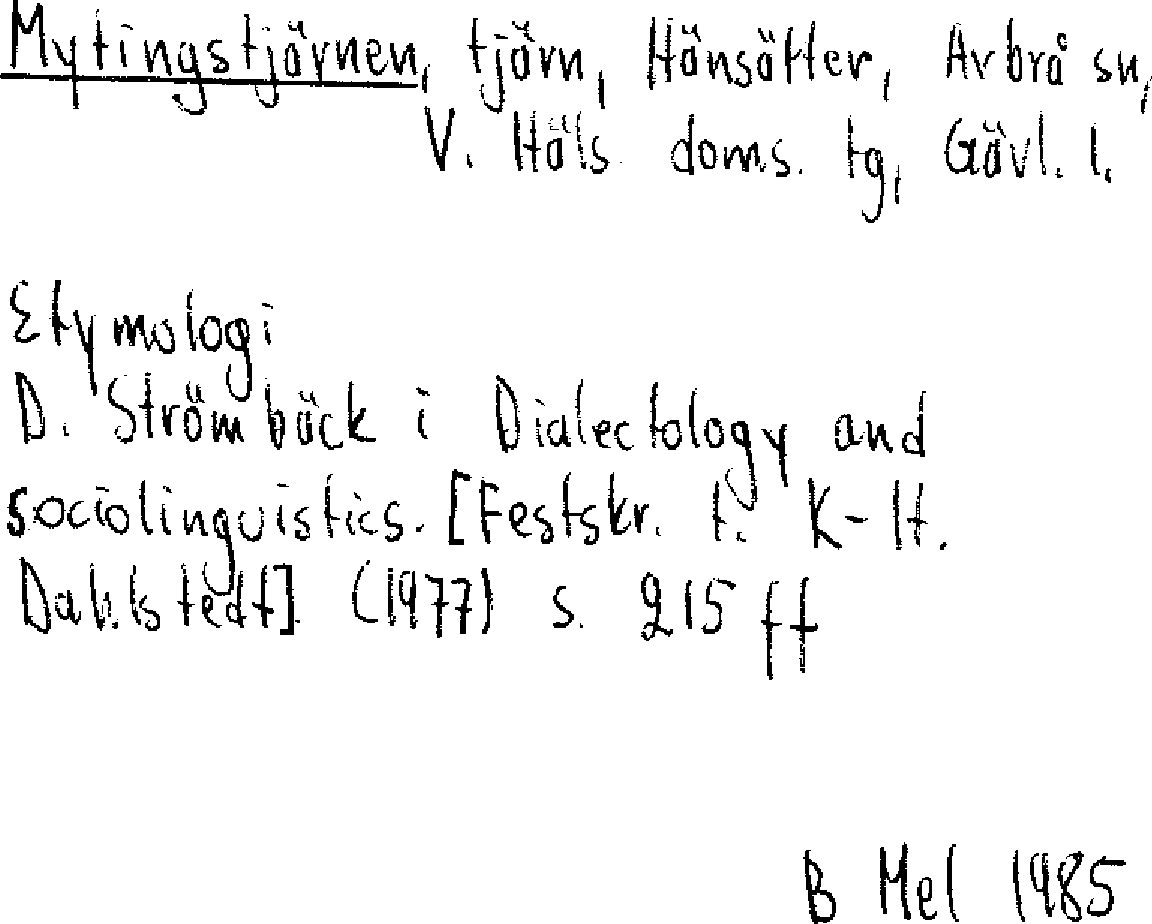 Mytingstjärnen, tjärn, Hänsätter, Arbrå sn,
V. Häls. doms. tg, Gävl. l.
Etymologi
D. Strömbäck i Dialectology and
sociolinguistics. [Festskr. t. K-H.
Dahlstedt] (1977) s. 215 ff
B Mel 1985